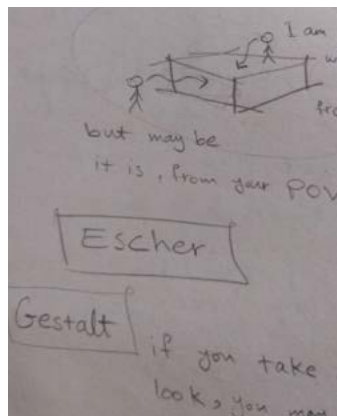 I am
w
fro
but may be
it is, from your POV
Escher
Gestalt
if you take
look, you may